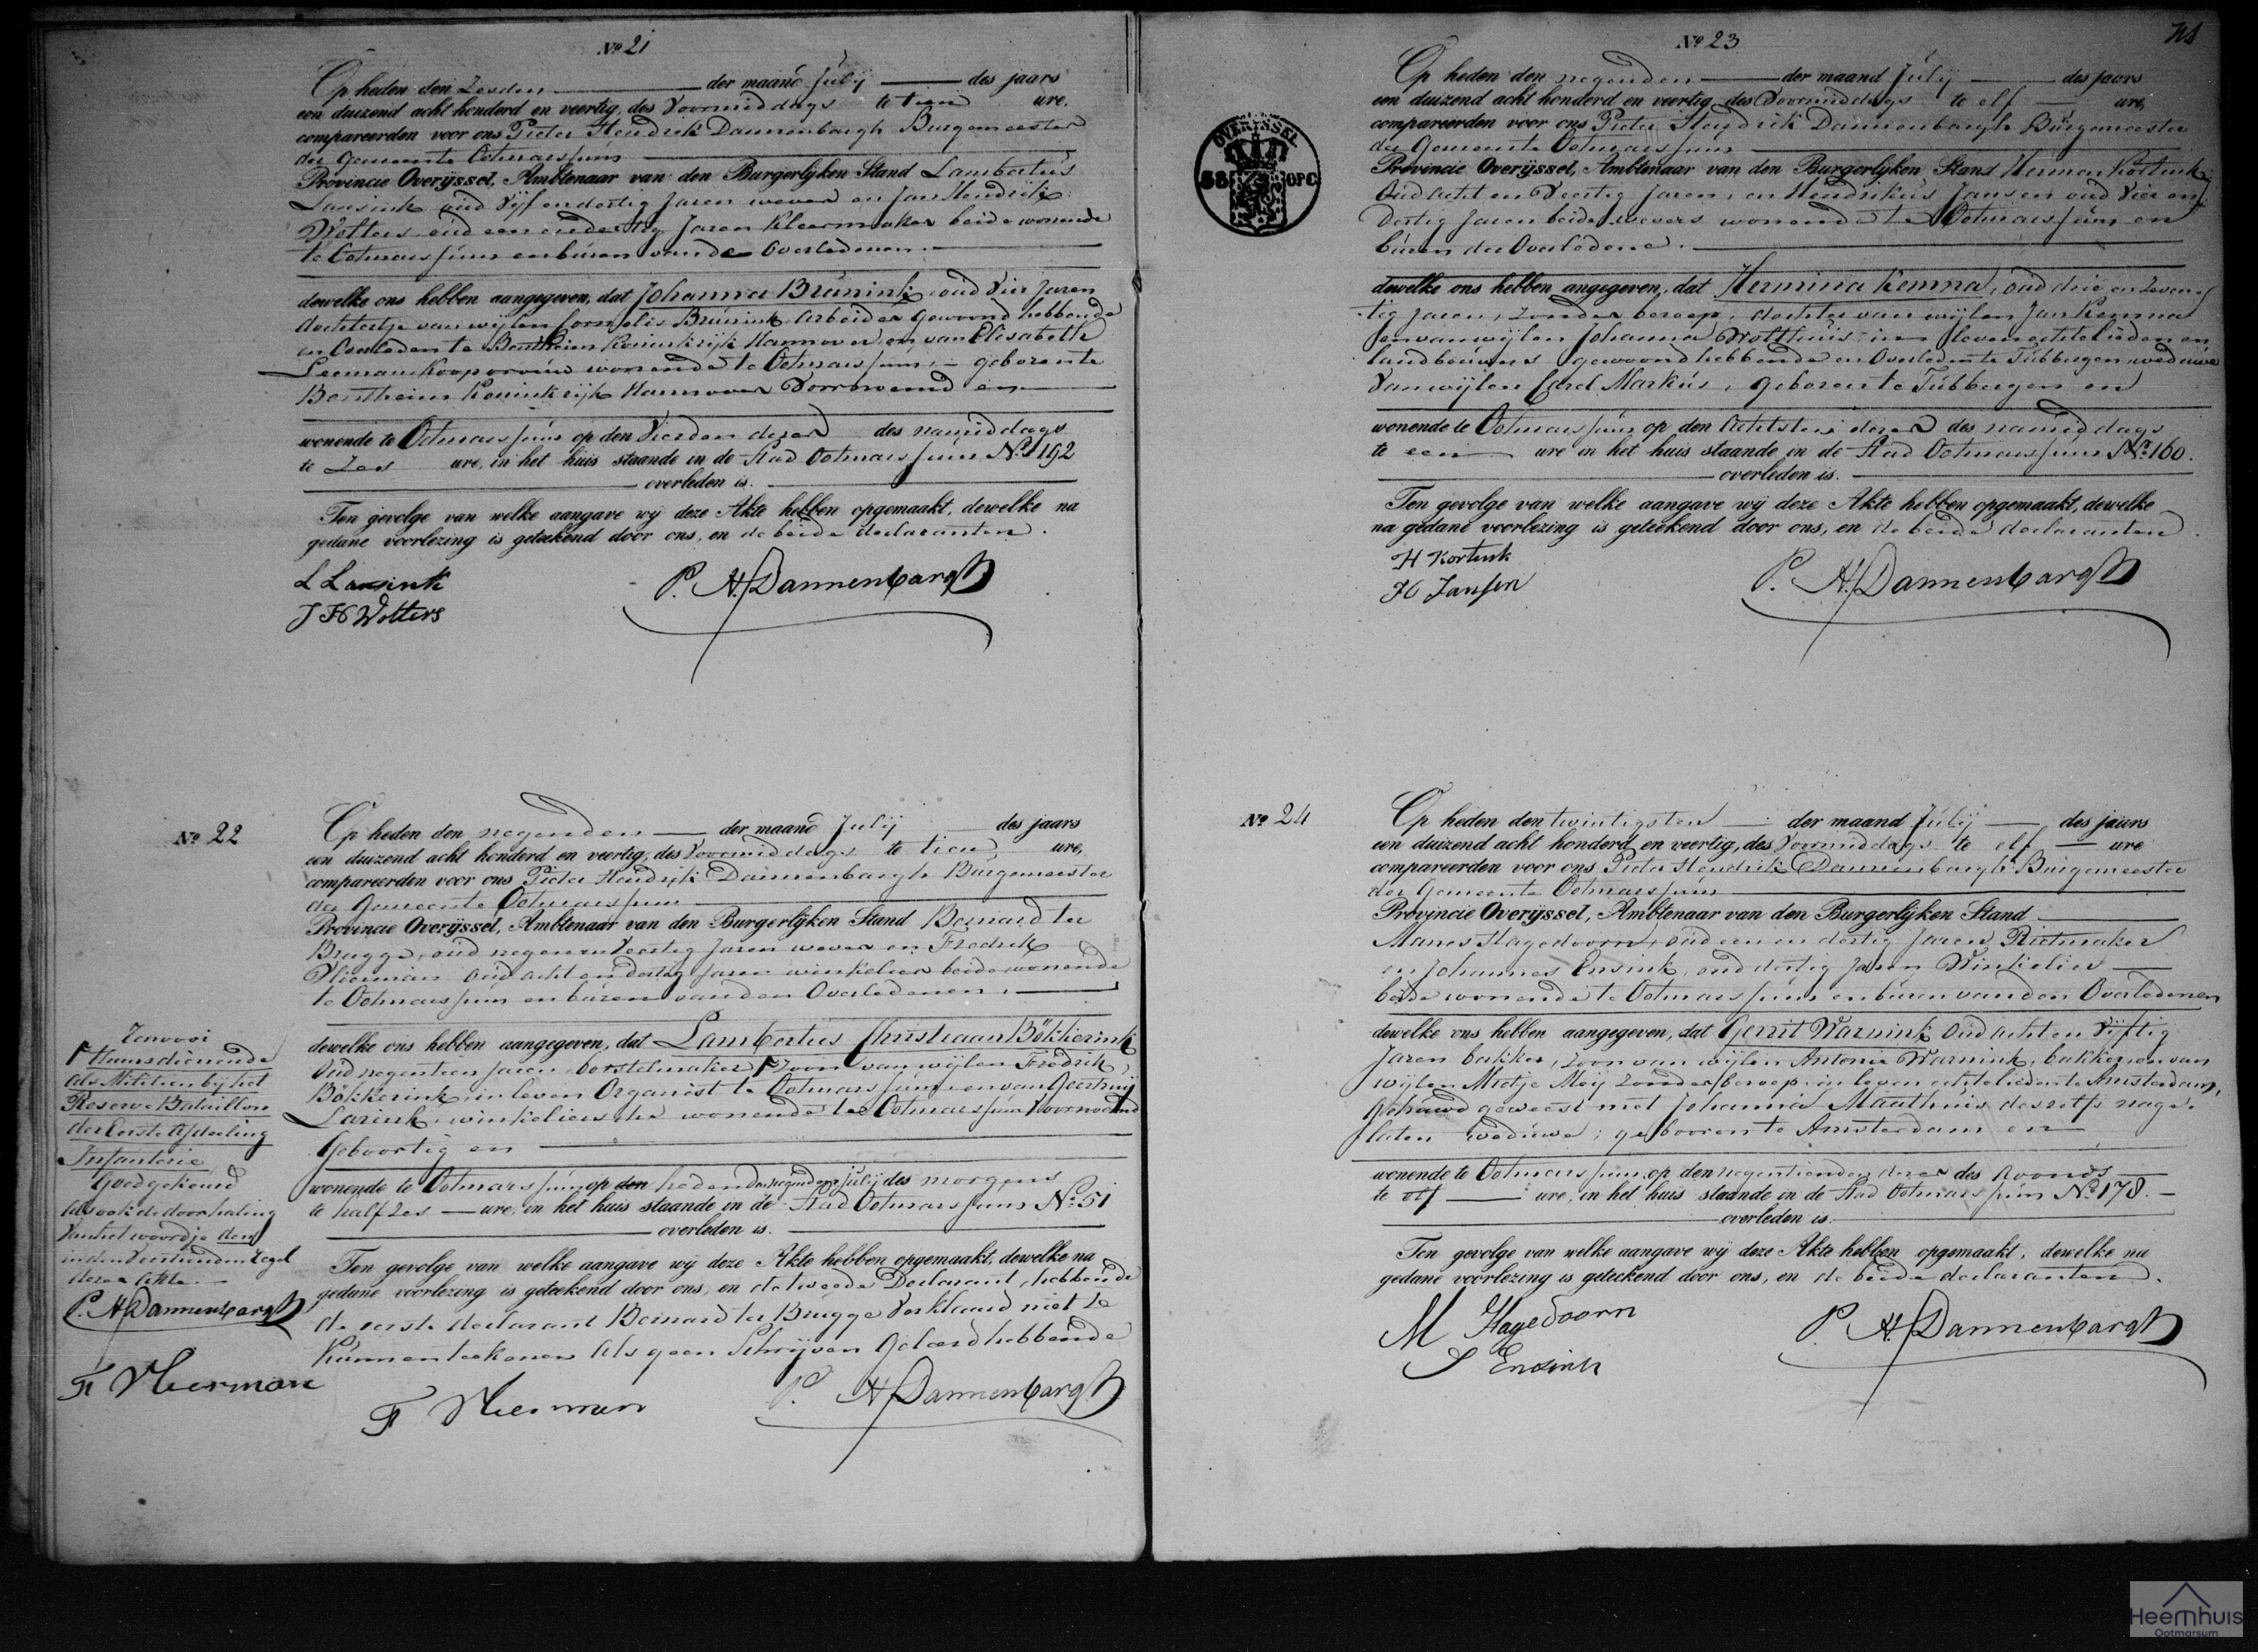 No 21
Op heden den Zesden der maand Julij des jaars
een duizend acht honderd en veertig, des Voormiddags te tien ure,
compareerden voor ons Pieter Hendrik Dannenbargh Burgemeester
der Gemeente Ootmarssum
Provincie Overijssel, Ambtenaar van den Burgerlijken Stand Lambertus
Lansink oud Vijf en dertig Jaren wever en Jan Hendrik
Wolters oud een en dertig Jaren Kleermaker beide wonende
te Ootmarssum en buren van de Overledenen.
dewelke ons hebben aangegeven, dat Johanna Brünink, oud Vier Jaren
dochtertje van wijlen Cornelis Brünink Arbeider gewoond hebbende
en Overleden te Bentheim Koninkrijk Hannover, en van Elisabeth
Leeman Koopvrouw wonende te Ootmarssum, geboren te
Bentheim Koninkrijk Hannover Voornoemd en
wonende te Ootmarssum op den Vierden dezer des namiddags
te Zes ure, in het huis staande in de Stad Ootmarssum No 192
overleden is.
Ten gevolge van welke aangave wij deze Akte hebben opgemaakt, dewelke na
gedane voorlezing is geteekend door ons, en de beide declaranten.
L Lansink
P. H. Dannenbargh
J H Wolters
No 22
Op heden den negenden der maand Julij des jaars
een duizend acht honderd en veertig, des Voormiddags te tien ure,
compareerden voor ons Pieter Hendrik Dannenbargh Burgemeester
der Gemeente Ootmarssum
Provincie Overijssel, Ambtenaar van den Burgerlijken Stand Bernard ter
Brugge, oud negen en Veertig Jaren wever en Fredrik
Vlierman oud acht en dertig Jaren winkelier beide wonende
te Ootmarssum en buren van den Overledenen.
dewelke ons hebben aangegeven, dat Lambertus Christiaan Bökkerink
Oud negentien Jaren borstelmaker Zoon van wijlen Fredrik
Bökkerink in leven Organist te Ootmarssum en van Geertruij
Larink, winkelierse wonende te Ootmarssum Voornoemd
Geboortig en
wonende te Ootmarssum op den heden den negenden Julij des morgens
te half Zes ure, in het huis staande in de Stad Ootmarssum No 51
overleden is.
Ten gevolge van welke aangave wij deze Akte hebben opgemaakt, dewelke na
gedane voorlezing is geteekend door ons, en de tweede Declarant, hebbende
de eerste declarant Bernard ter Brugge Verklaard niet te
Kunnen teekenen Als geen Schrijven Geleerd hebbende
F Vlierman
P. H. Dannenbargh
Renvooi
Thans dienende
als Milicien bij het
Reserve Bataillon
der Eerste Afdeeling
Infanterie
Goedgekeurd
Als ook de doorhaling
van het woordje den
in den Veertienden regel
dezer Akte.
P. H. Dannenbargh
F Vlierman
71
No 23
Op heden den negenden der maand Julij des jaars
een duizend acht honderd en veertig, des Voormiddags te elf ure,
compareerden voor ons Pieter Hendrik Dannenbargh Burgemeester
der Gemeente Ootmarssum
Provincie Overijssel, Ambtenaar van den Burgerlijken Stand Herman Kortink
Oud acht en Veertig Jaren, en Hendrikus Jansen oud Vier en
Dertig Jaren beide wevers wonende te Ootmarssum en
buren der Overledene.
dewelke ons hebben angegeven, dat Hermina Kemna, oud drie en Zeven
tig Jaren, Zonder beroep, dochter van wijlen Jan Kemna
en van wijlen Johanna Wolthuis in leven echtelieden en
landbouwers gewoond hebbende en Overleden te Tubbergen weduwe
Van wijlen Card Markus, geboren te Tubbergen en
wonende te Ootmarssum op den Achtsten dezer des namiddags
te een ure in het huis staande in de Stad Ootmarssum No 160.
overleden is.
Ten gevolge van welke aangave wij deze Akte hebben opgemaakt, dewelke
na gedane voorlezing is geteekend door ons, en de beide declaranten.
H Kortink
P. H. Dannenbargh
H Jansen
OVERIJSSEL
38 OPC
No 24
Op heden den twintigsten der maand Julij des jaars
een duizend acht honderd en veertig, des Voormiddags te elf ure
compareerden voor ons Pieter Hendrik Dannenbargh Burgemeester
der Gemeente Ootmarssum
Provincie Overijssel, Ambtenaar van den Burgerlijken Stand
Manes Hagedoorn, oud een en dertig Jaren Rietmaker
en Johannes Ensink, oud dertig Jaren Winkelier
beide wonende te Ootmarssum en buren van den Overledenen
dewelke ons hebben aangegeven, dat Gerrit Warnink Oud acht en Vijftig
Jaren bakker, Zoon van wijlen Antonie Warnink, bakker, en van
wijlen Mietje Moij Zonder beroep in leven echtelieden te Amsterdam,
Gehuwd geweest met Johanna Maathuis deszelfs nage-
laten weduwe, geboren te Amsterdam en
wonende te Ootmarssum op den negentienden dezer des avonds
te elf ure, in het huis staande in de Stad Ootmarssum No 178.
overleden is.
Ten gevolge van welke aangave wij deze Akte hebben opgemaakt, dewelke na
gedane voorlezing is geteekend door ons, en de beide declaranten.
M Hagedoorn
P. H. Dannenbargh
J Ensink
Heemhuis
Ootmarsum